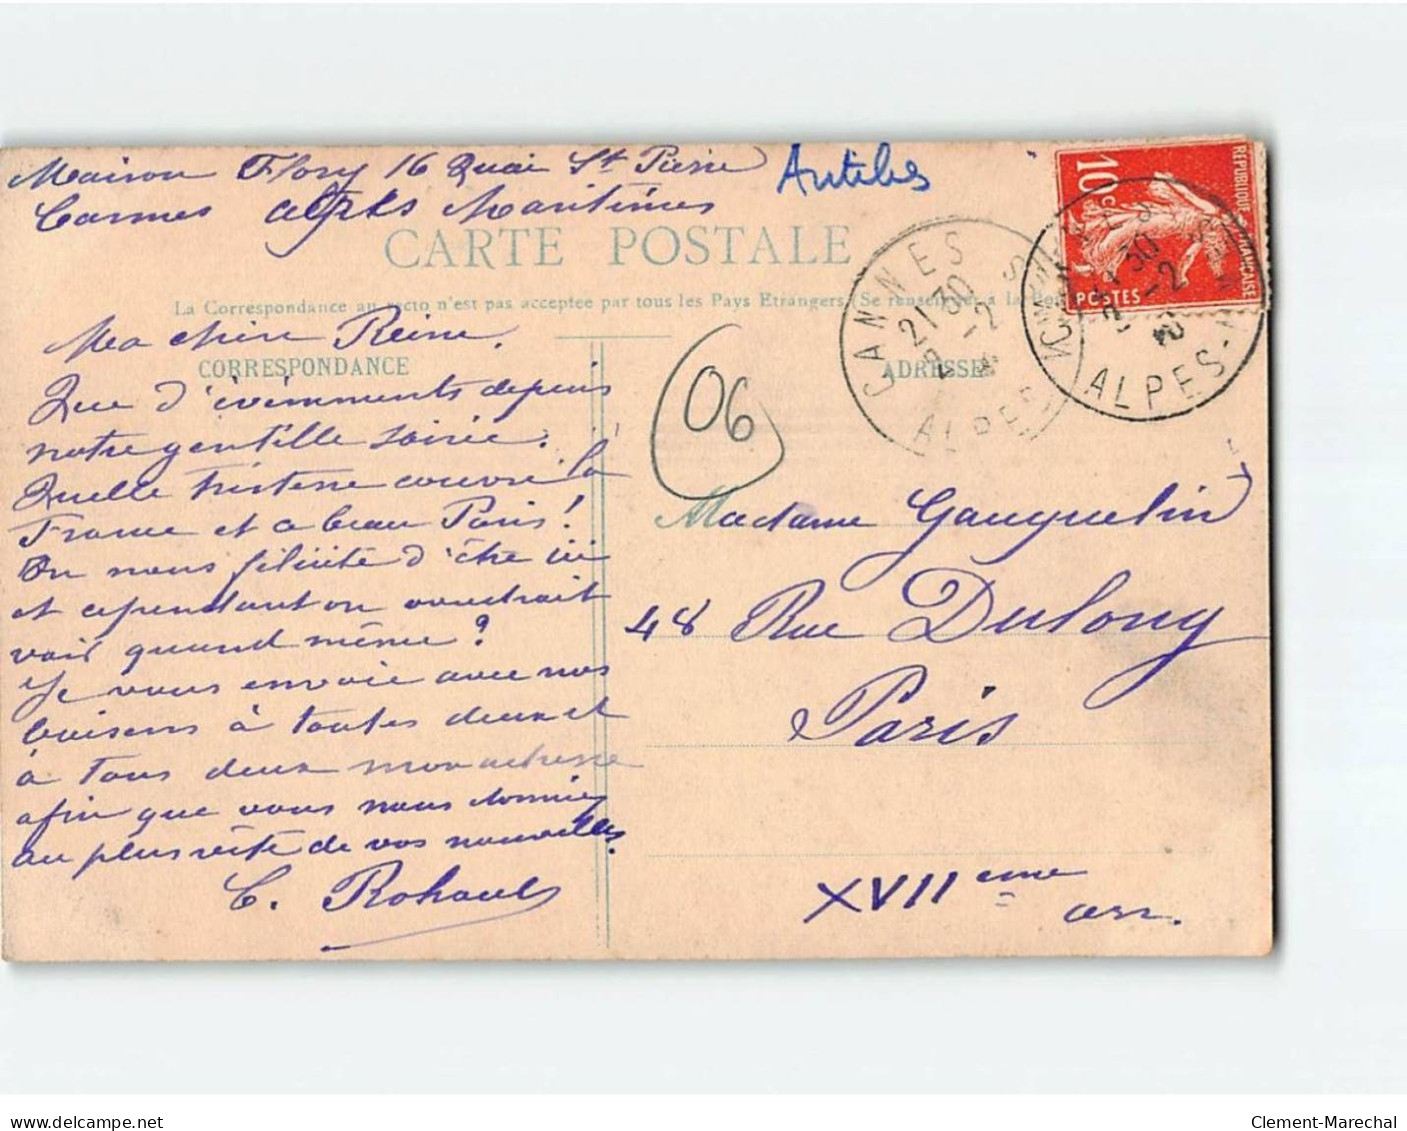 Maison Flory 16 Quai St Pierre
Cannes Alpes Maritimes
Antibes
CARTE POSTALE
La Correspondance au recto n'est pas acceptée par tous les Pays Etrangers (Se renseigner à la
CORRESPONDANCE
ADRESSE
REPUBLIQUE FRANÇAISE
10 c
POSTES
CANNES
21 30
-2
ALPES
21 30
-2
ALPES-M
06
Ma chère Reine.
Que d'évènnments depuis
notre gentille soirée.
Quelle tristesse couvre la
France et ce beau Paris!
On nous félicite d'être ici
et cependant on voudrait
voir quand même?
Je vous envoie avec nos
baisers à toutes deux et
à tous deux mon adresse
afin que vous nous donniez
au plus vite de vos nouvelles.
C. Rohault
Madame Gauguelin
48 Rue Dulong
Paris
XVIIeme
arr.
delcampe.net
Clement-Marechal